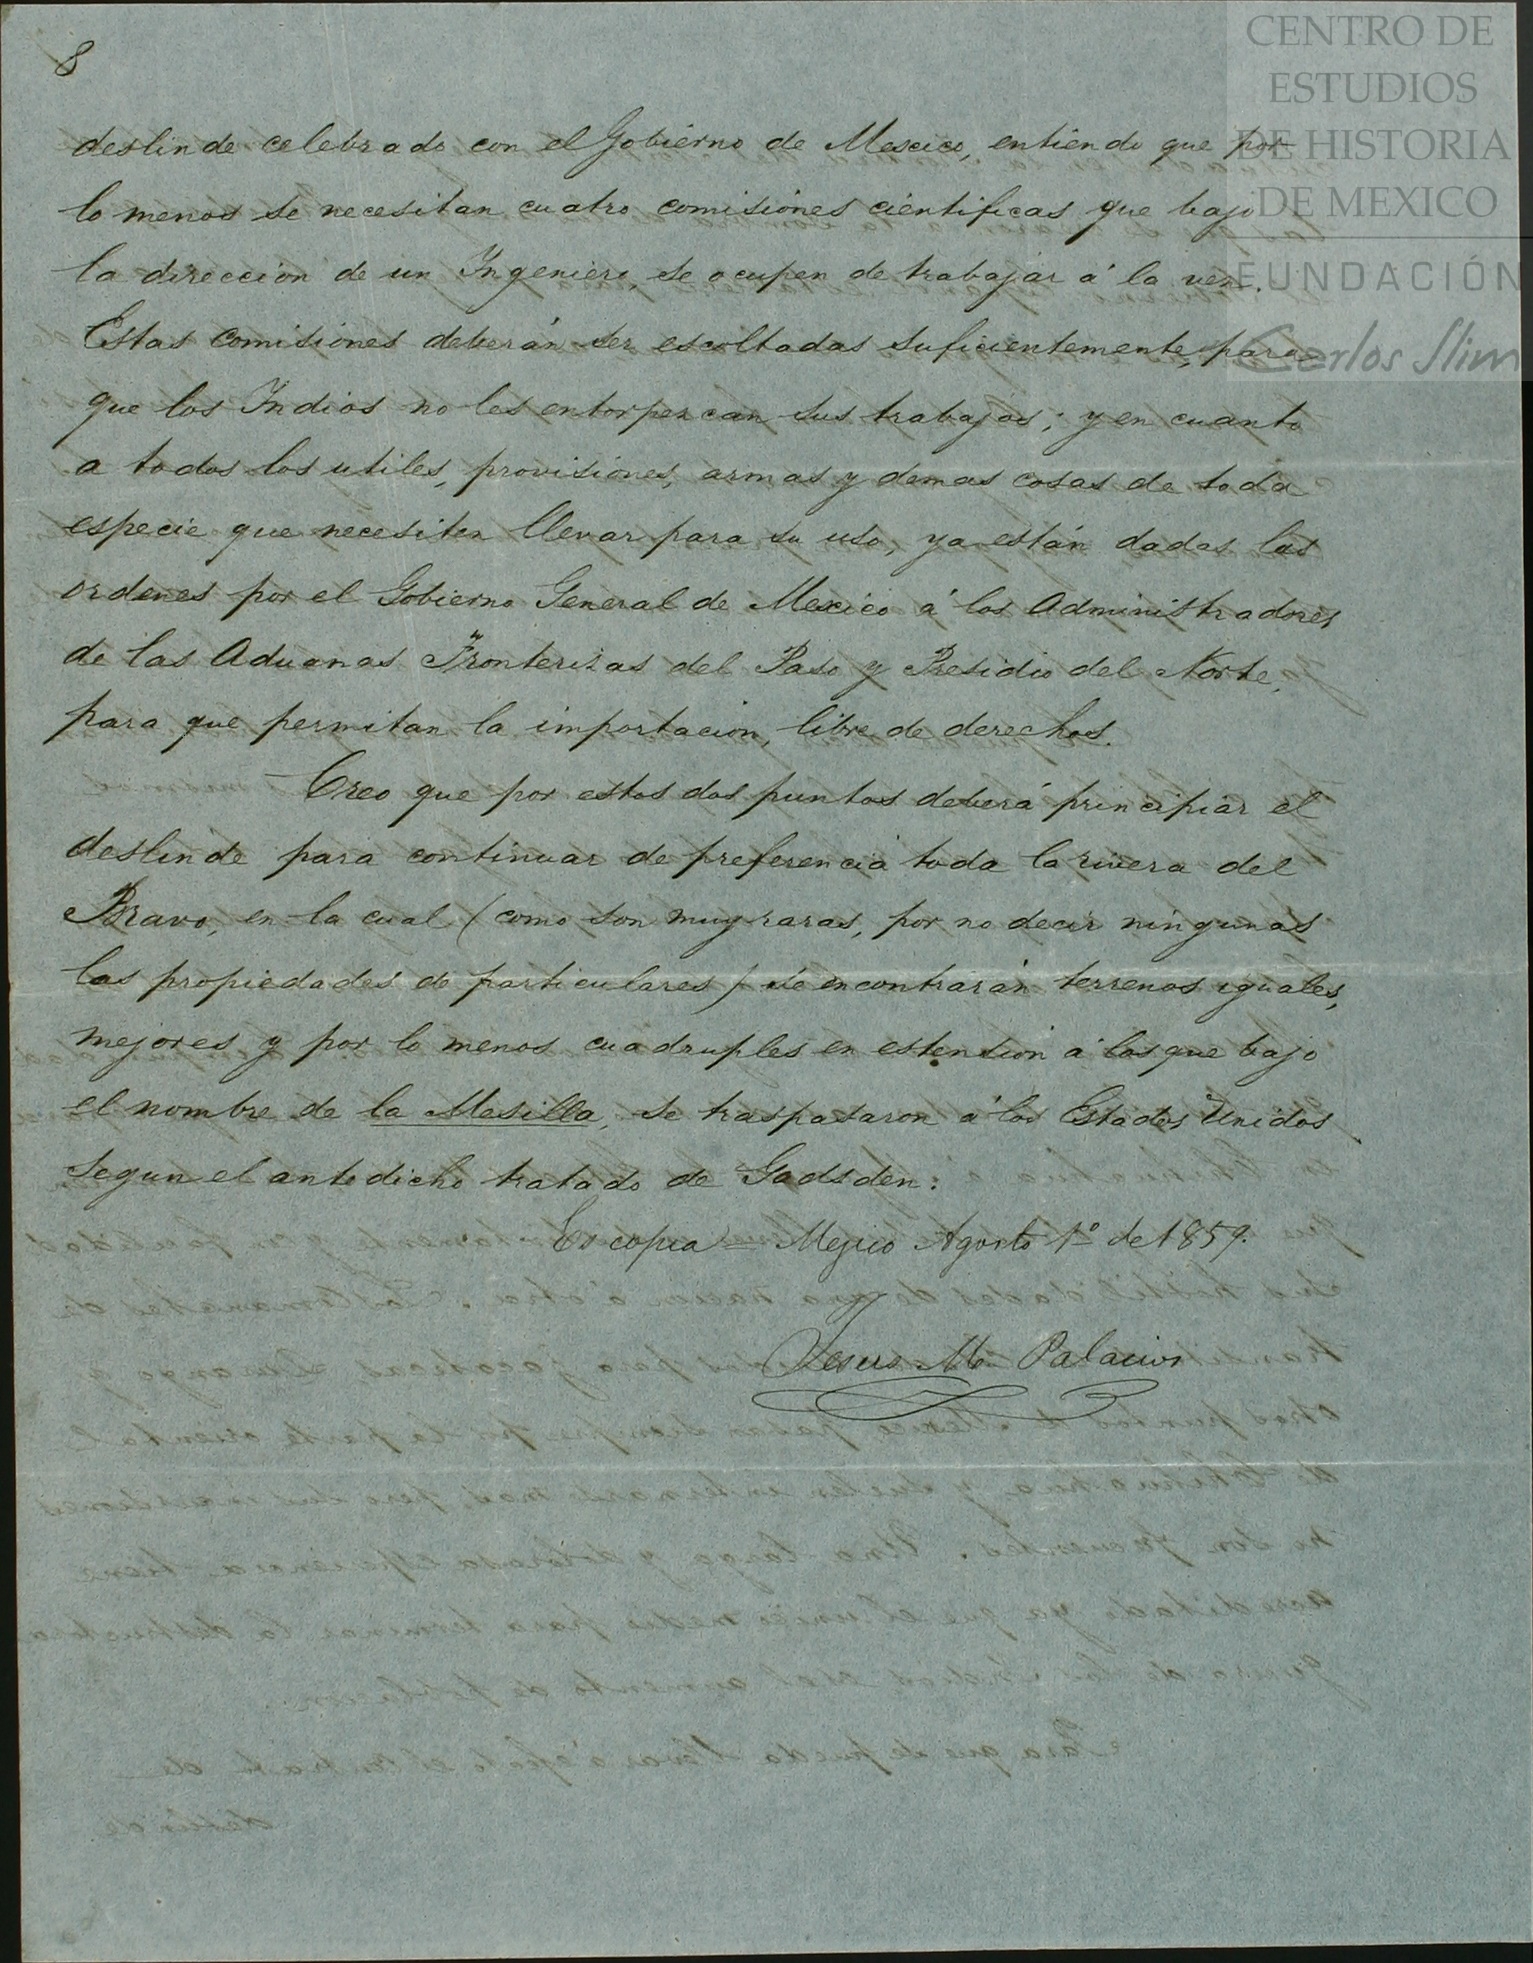 8
CENTRO DE
ESTUDIOS
DE HISTORIA
DE MEXICO
FUNDACIÓN
Carlos Slim
deslinde celebrado con el Gobierno de Mexico, entiendo que por
lo menos se necesitan cuatro comisiones cientificas que bajo
la direccion de un Ingeniero, se ocupen de trabajar á la vez.
Estas comisiones deberán ser escoltadas suficientemente, para
que los Indios no les entorpezcan sus trabajos; y en cuanto
a todos los utiles, provisiones, armas y demas cosas de toda
especie que necesiten llevar para su uso, ya están dadas las
ordenes por el Gobierno General de Mexico á los Administradores
de las Aduanas Fronterizas del Paso y Presidio del Norte,
para que permitan la importacion, libre de derechos.
Creo que por estos dos puntos deberá principiar el
deslinde para continuar de preferencia toda la rivera del
Bravo, en la cual (como son muy raras, por no decir ningunas
las propiedades de particulares) se encontrarán terrenos iguales,
mejores y por lo menos cuadruples en estension á los que bajo
el nombre de la Mesilla, se traspasaron á los Estados Unidos
segun el antedicho tratado de Gadsden.
Es copia = Mejico Agosto 1º de 1859.
Jesus M. Palacios